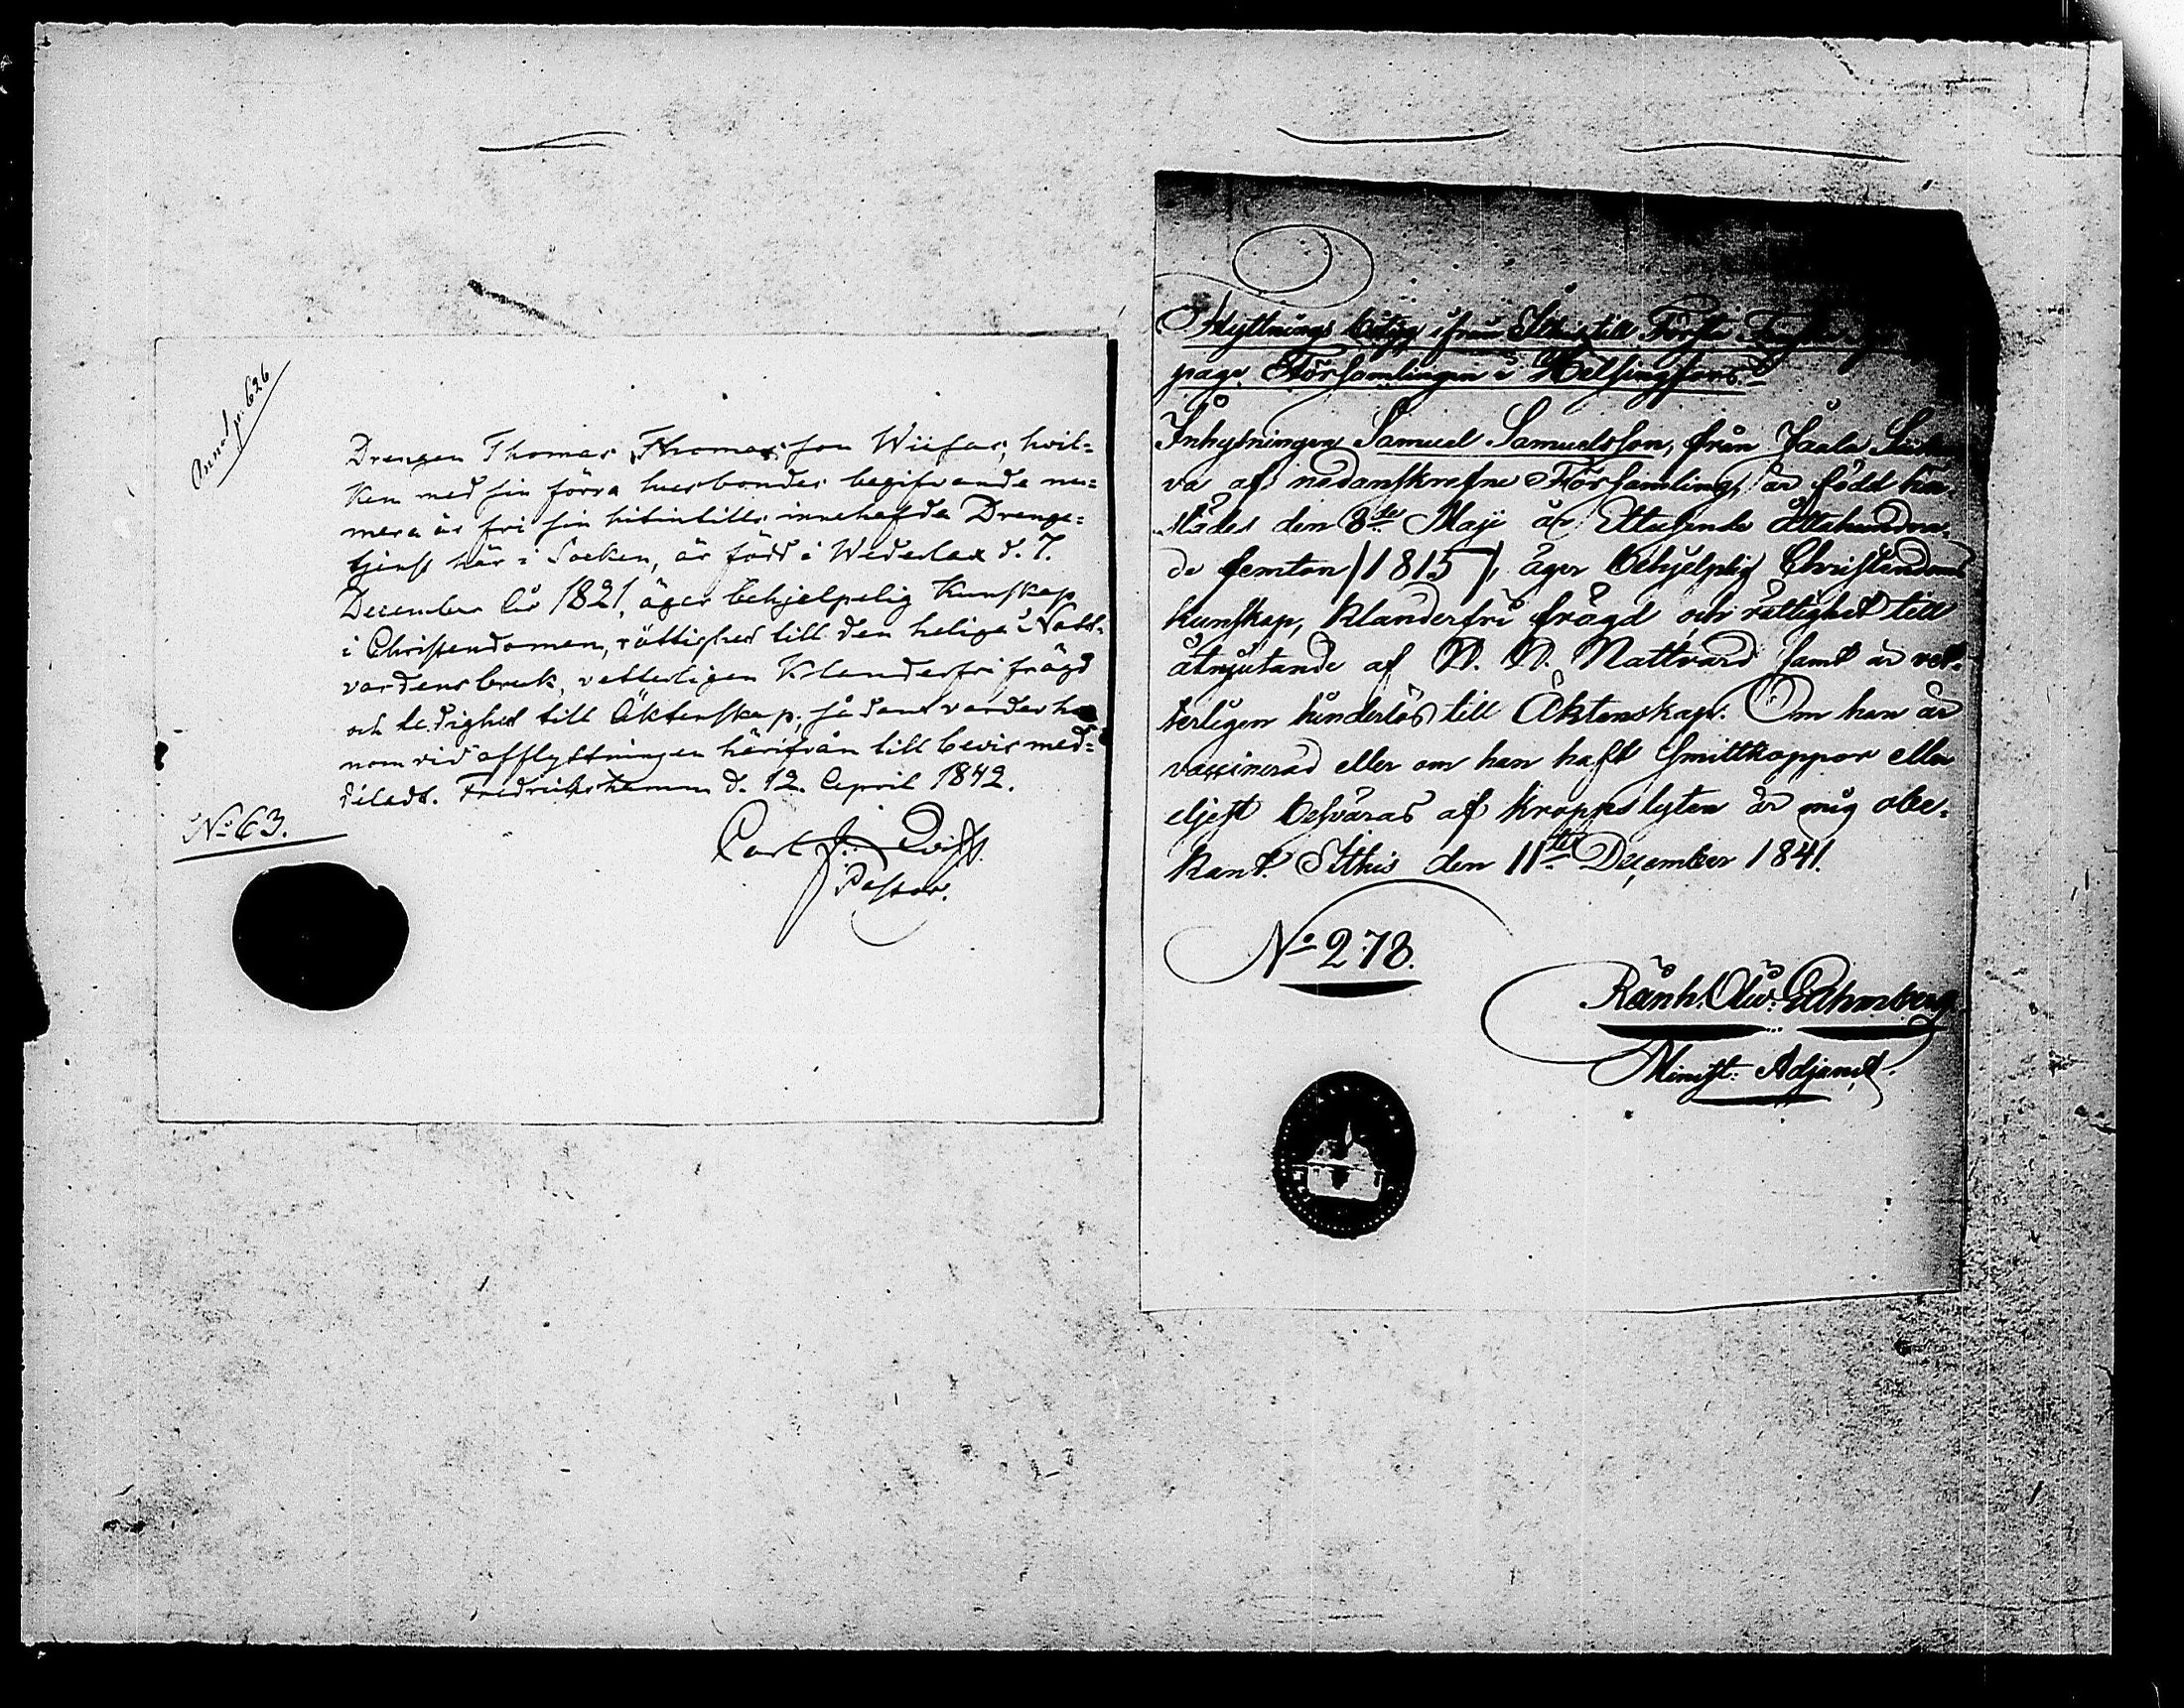 Annot. p. 626
Drengen Thomas Thomasson Wiifas, hvil-
ken med sin förra husbondes begifvande nu-
mera är fri sin hitintills innehafda Drenge-
tjenst här i Socken, är född i Wederlax d. 7.
December år 1821, äger behjelpelig Kunskap
i Christendomen, rättighet till den heliga Natt-
vardens bruk, vetterligen Klanderfri frägd
och ledighet till Äktenskap; sådant varder ho-
nom vid afflyttningen härifrån till bevis med-
deladt. Fredrikshamn d. 12. April 1842.
No 63.
Carl
Pastor.
Flyttnings betyg ifrån Itthis till Första
page Församlingen i Helsingfors.
Inhysningen Samuel Samuelsson, från Jaala
va af nedanskrefne Församling, är född här-
städes den 8de Maji år Ettusende åttahundra-
de femton /1815/, äger behjelplig Christendoms
kunskap, klanderfri frägd och rättighet till
åtnjutande af N. N. Nattvard samt är vet-
terligen hinderlös till Äktenskap. Om han är
vaccinerad eller om han haft Smittkoppor eller
eljest besväras af kroppslyten är mig obe-
kant. Itthis den 11te December 1841.
No 278.
Minist: Adjunct.